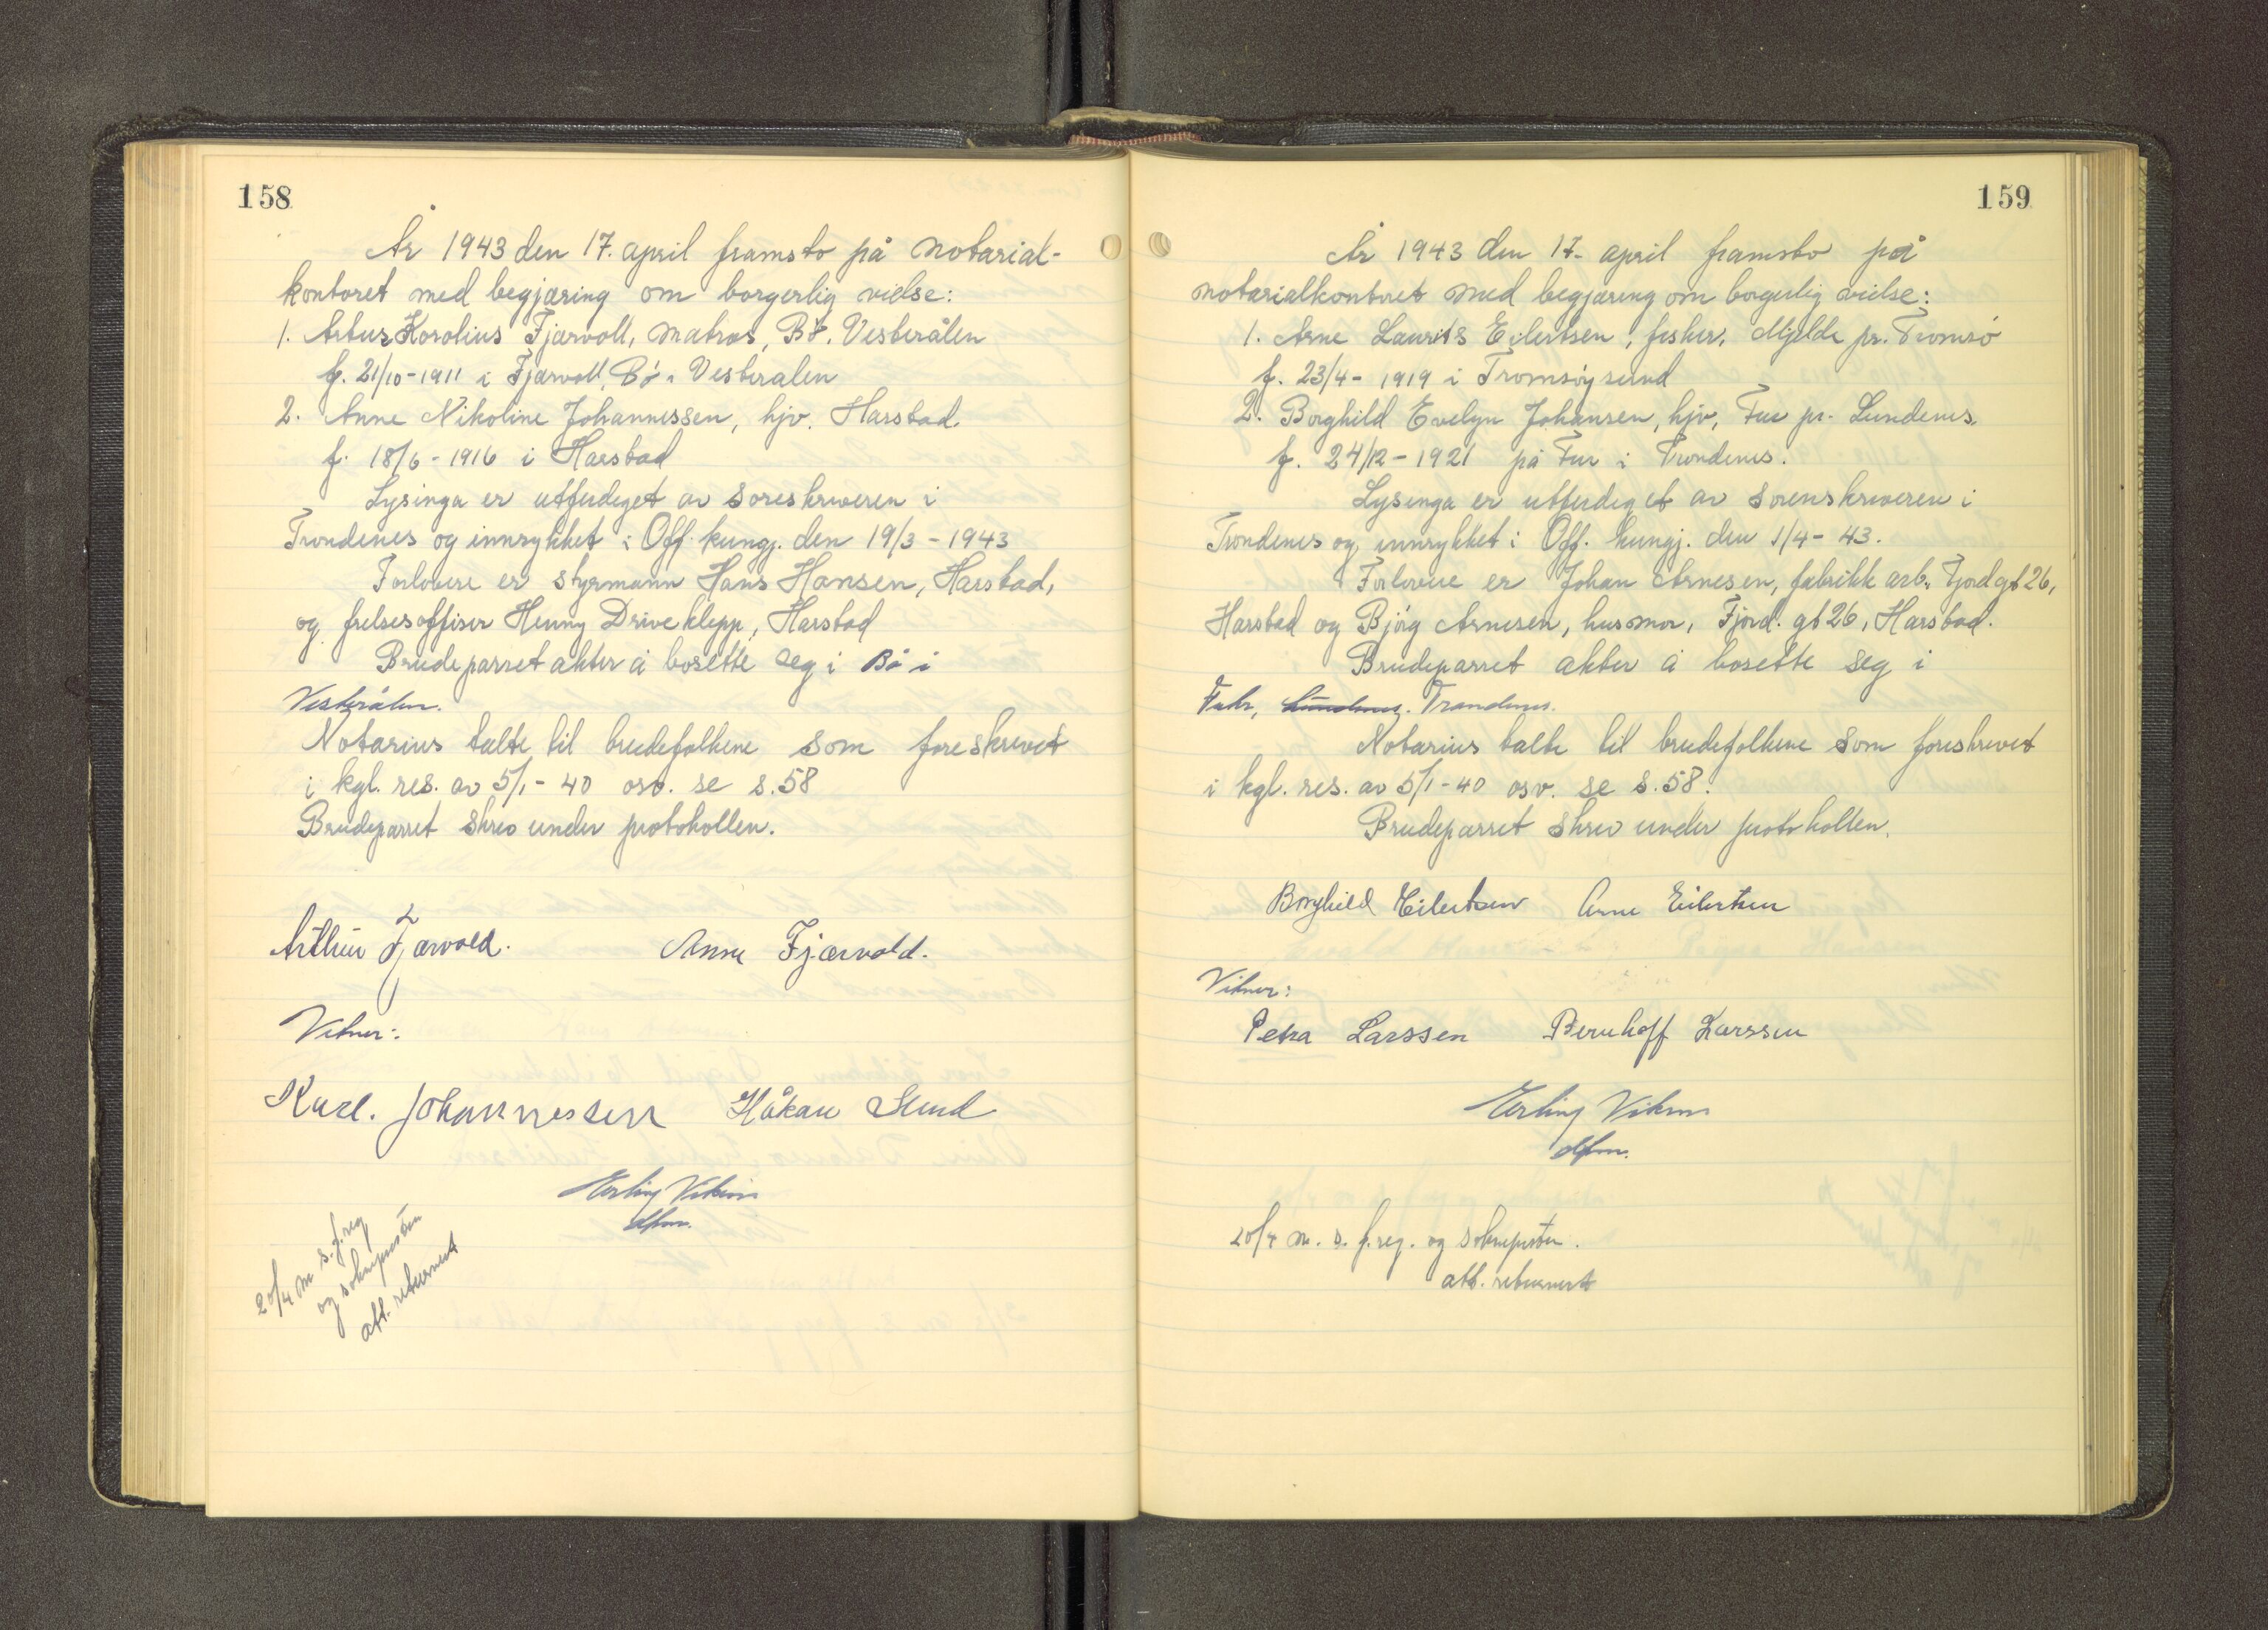 158
År 1943 den 17. april framsto på notarial-
kontoret med begjæring om borgerlig vielse:
1. Artur Karolius Fjærvoll, matros, Bø. Vesterålen
f. 21/10-1911 i Fjærvoll, Bø i Vesterålen
2. Anne Nikoline Johannessen, hjv. Harstad.
f. 18/6-1916 i Harstad
Lysinga er utferdiget av soreskriveren i
Trondenes og innrykket i Off. kungj. den 19/3-1943
Forlovere er styrmann Hans Hansen, Harstad,
og frelsesoffiser Henny Driveklepp, Harstad
Brudeparret akter å bosette seg i Bø i
Vesterålen.
Notarius talte til brudefolkene som foreskrevet
i kgl. res. av 5/1-40 osv. se s.58
Brudeparret skrev under protokollen.
Arthur Fjærvold. Anne Fjærvold.
Vitner:
Karl. Johannessen Håkan Lund
Erling Vikan
dfm.
20/4 m s. f. reg
og sokneprsten
att. returnert
159
År 1943 den 17. april framsto på
notarialkontoret med begjæring om borgerlig vielse:
1. Arne Laurits Eilertsen, fisker, Mjelde pr. Tromsø
f. 23/4-1919 i Tromsøysund
2. Borghild Evelyn Johansen, hjv, Fur pr. Lundenes.
f. 24/12-1921 på Fur i Trondenes.
Lysinga er utferdiget av sorenskriveren i
Trondenes og innrykket i Off. kungj. den 1/4-43.
Forlovere er Johan Arnesen, fabrikk arb., Fjordgt 26,
Harstad og Bjørg Arnesen, husmor, Fjord. gt 26, Harstad.
Brudeparret akter å bosette seg i
Fuhr, Lundenes. Trondenes.
Notarius talte til brudefolkene som foreskrevet
i kgl. res. av 5/1-40 osv. se s.58.
Brudeparret skrev under protokollen.
Borghild Eilertsen Arne Eilertsen
Vitner:
Petra Larssen Bernhoff Larssen
Erling Vikan
dfm.
20/4 m. s. f. reg. og sokneprsten.
att. returnert